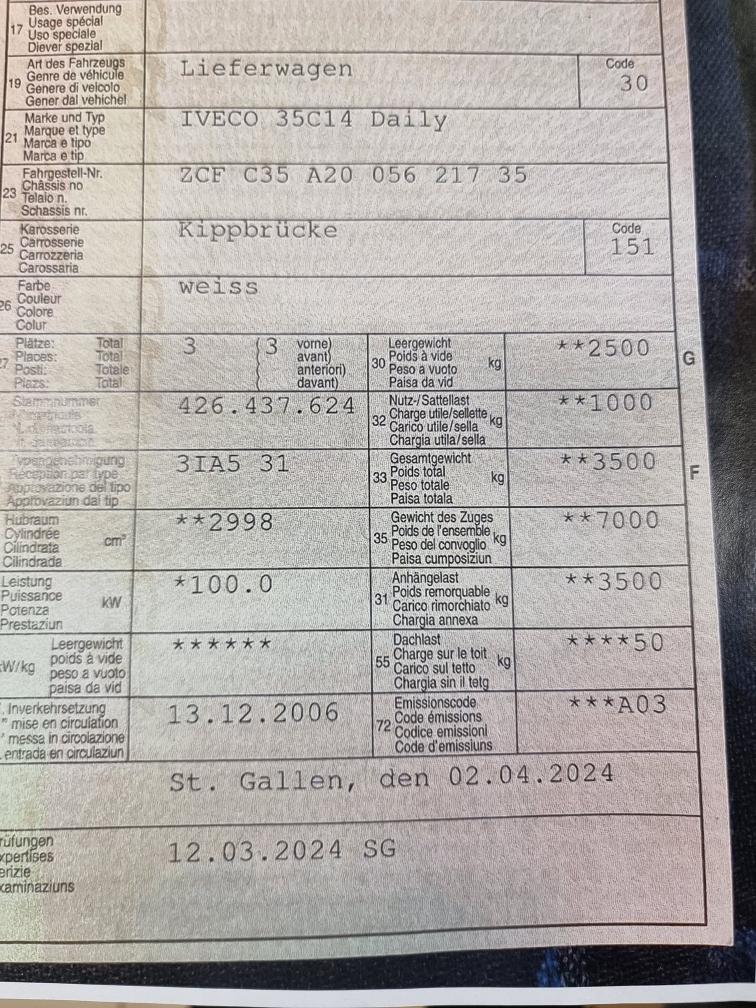 17 Bes. Verwendung
Usage spécial
Uso speciale
Diever spezial
19 Art des Fahrzeugs
Genre de véhicule
Genere di veicolo
Gener dal vehichel
Lieferwagen
Code
30
21 Marke und Typ
Marque et type
Marca e tipo
Marca e tip
IVECO 35C14 Daily
23 Fahrgestell-Nr.
Châssis no
Telaio n.
Schassis nr.
ZCF C35 A20 056 217 35
25 Karosserie
Carrosserie
Carrozzeria
Carossaria
Kippbrücke
Code
151
26 Farbe
Couleur
Colore
Colur
weiss
Plätze: Total
Places: Total
Posti: Totale
Plazs: Total
3 (3 vorne)
avant)
anteriori)
davant)
30 Leergewicht
Poids à vide
Peso a vuoto
Paisa da vid
kg
**2500
G
Stammnummer
426.437.624
32 Nutz-/Sattellast
Charge utile/sellette
Carico utile/sella
Chargia utila/sella
kg
**1000
Typengenehmigung
Réception par type
Approvazione del tipo
Approvaziun dal tip
3IA5 31
33 Gesamtgewicht
Poids total
Peso totale
Paisa totala
kg
**3500
F
Hubraum
Cylindrée
Cilindrata
Cilindrada
cm³
**2998
35 Gewicht des Zuges
Poids de l'ensemble
Peso del convoglio
Paisa cumposiziun
kg
**7000
Leistung
Puissance
Potenza
Prestaziun
kW
*100.0
31 Anhängelast
Poids remorquable
Carico rimorchiato
Chargia annexa
kg
**3500
W/kg
Leergewicht
poids à vide
peso a vuoto
paisa da vid
******
55 Dachlast
Charge sur le toit
Carico sul tetto
Chargia sin il tetg
kg
****50
. Inverkehrsetzung
" mise en circulation
' messa in circolazione
. entrada en circulaziun
13.12.2006
72 Emissionscode
Code émissions
Codice emissioni
Code d'emissiuns
***A03
St. Gallen, den 02.04.2024
rüfungen
xpertises
erizie
xaminaziuns
12.03.2024 SG